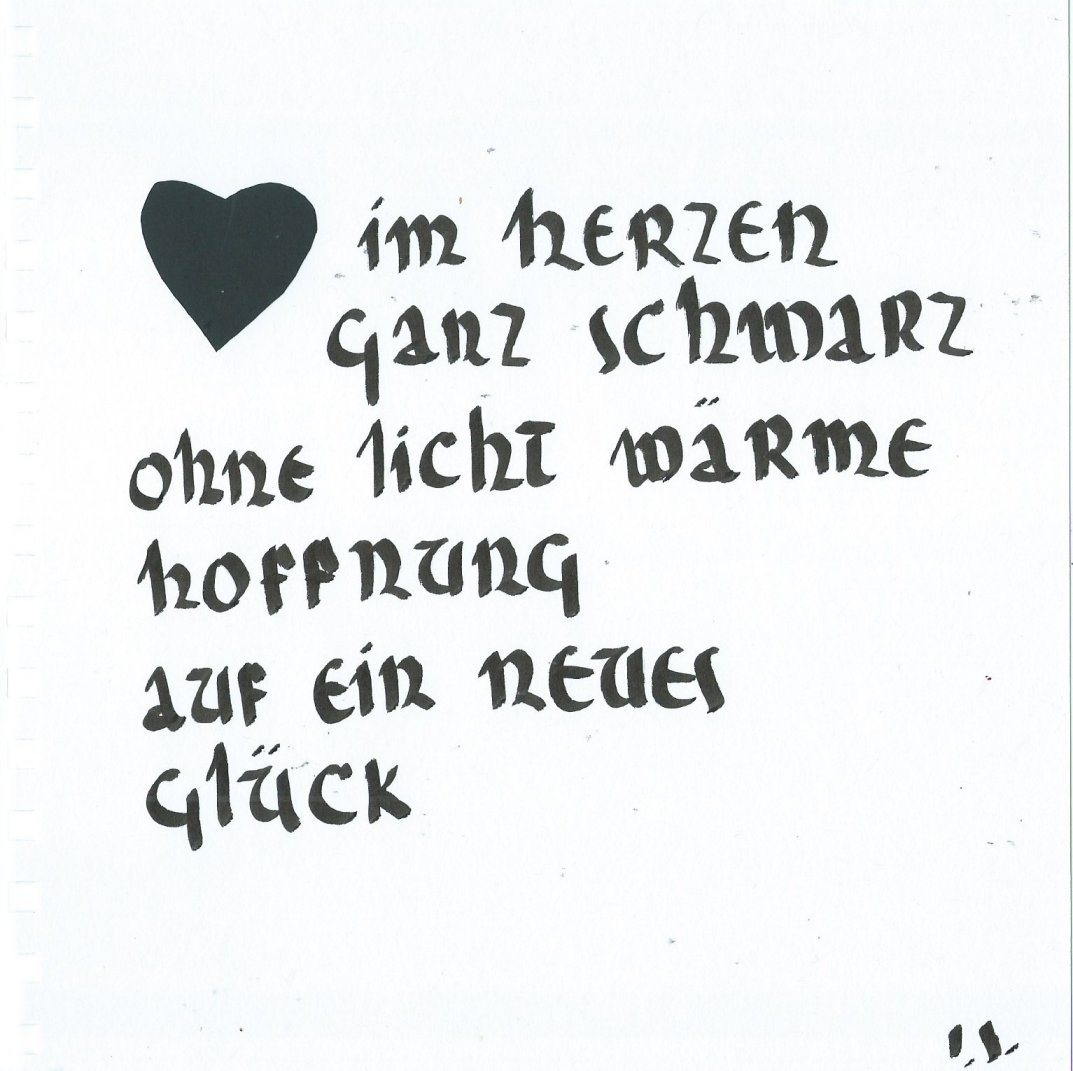 im herzen
ganz schwarz
ohne licht wärme
hoffnung
auf ein neues
glück